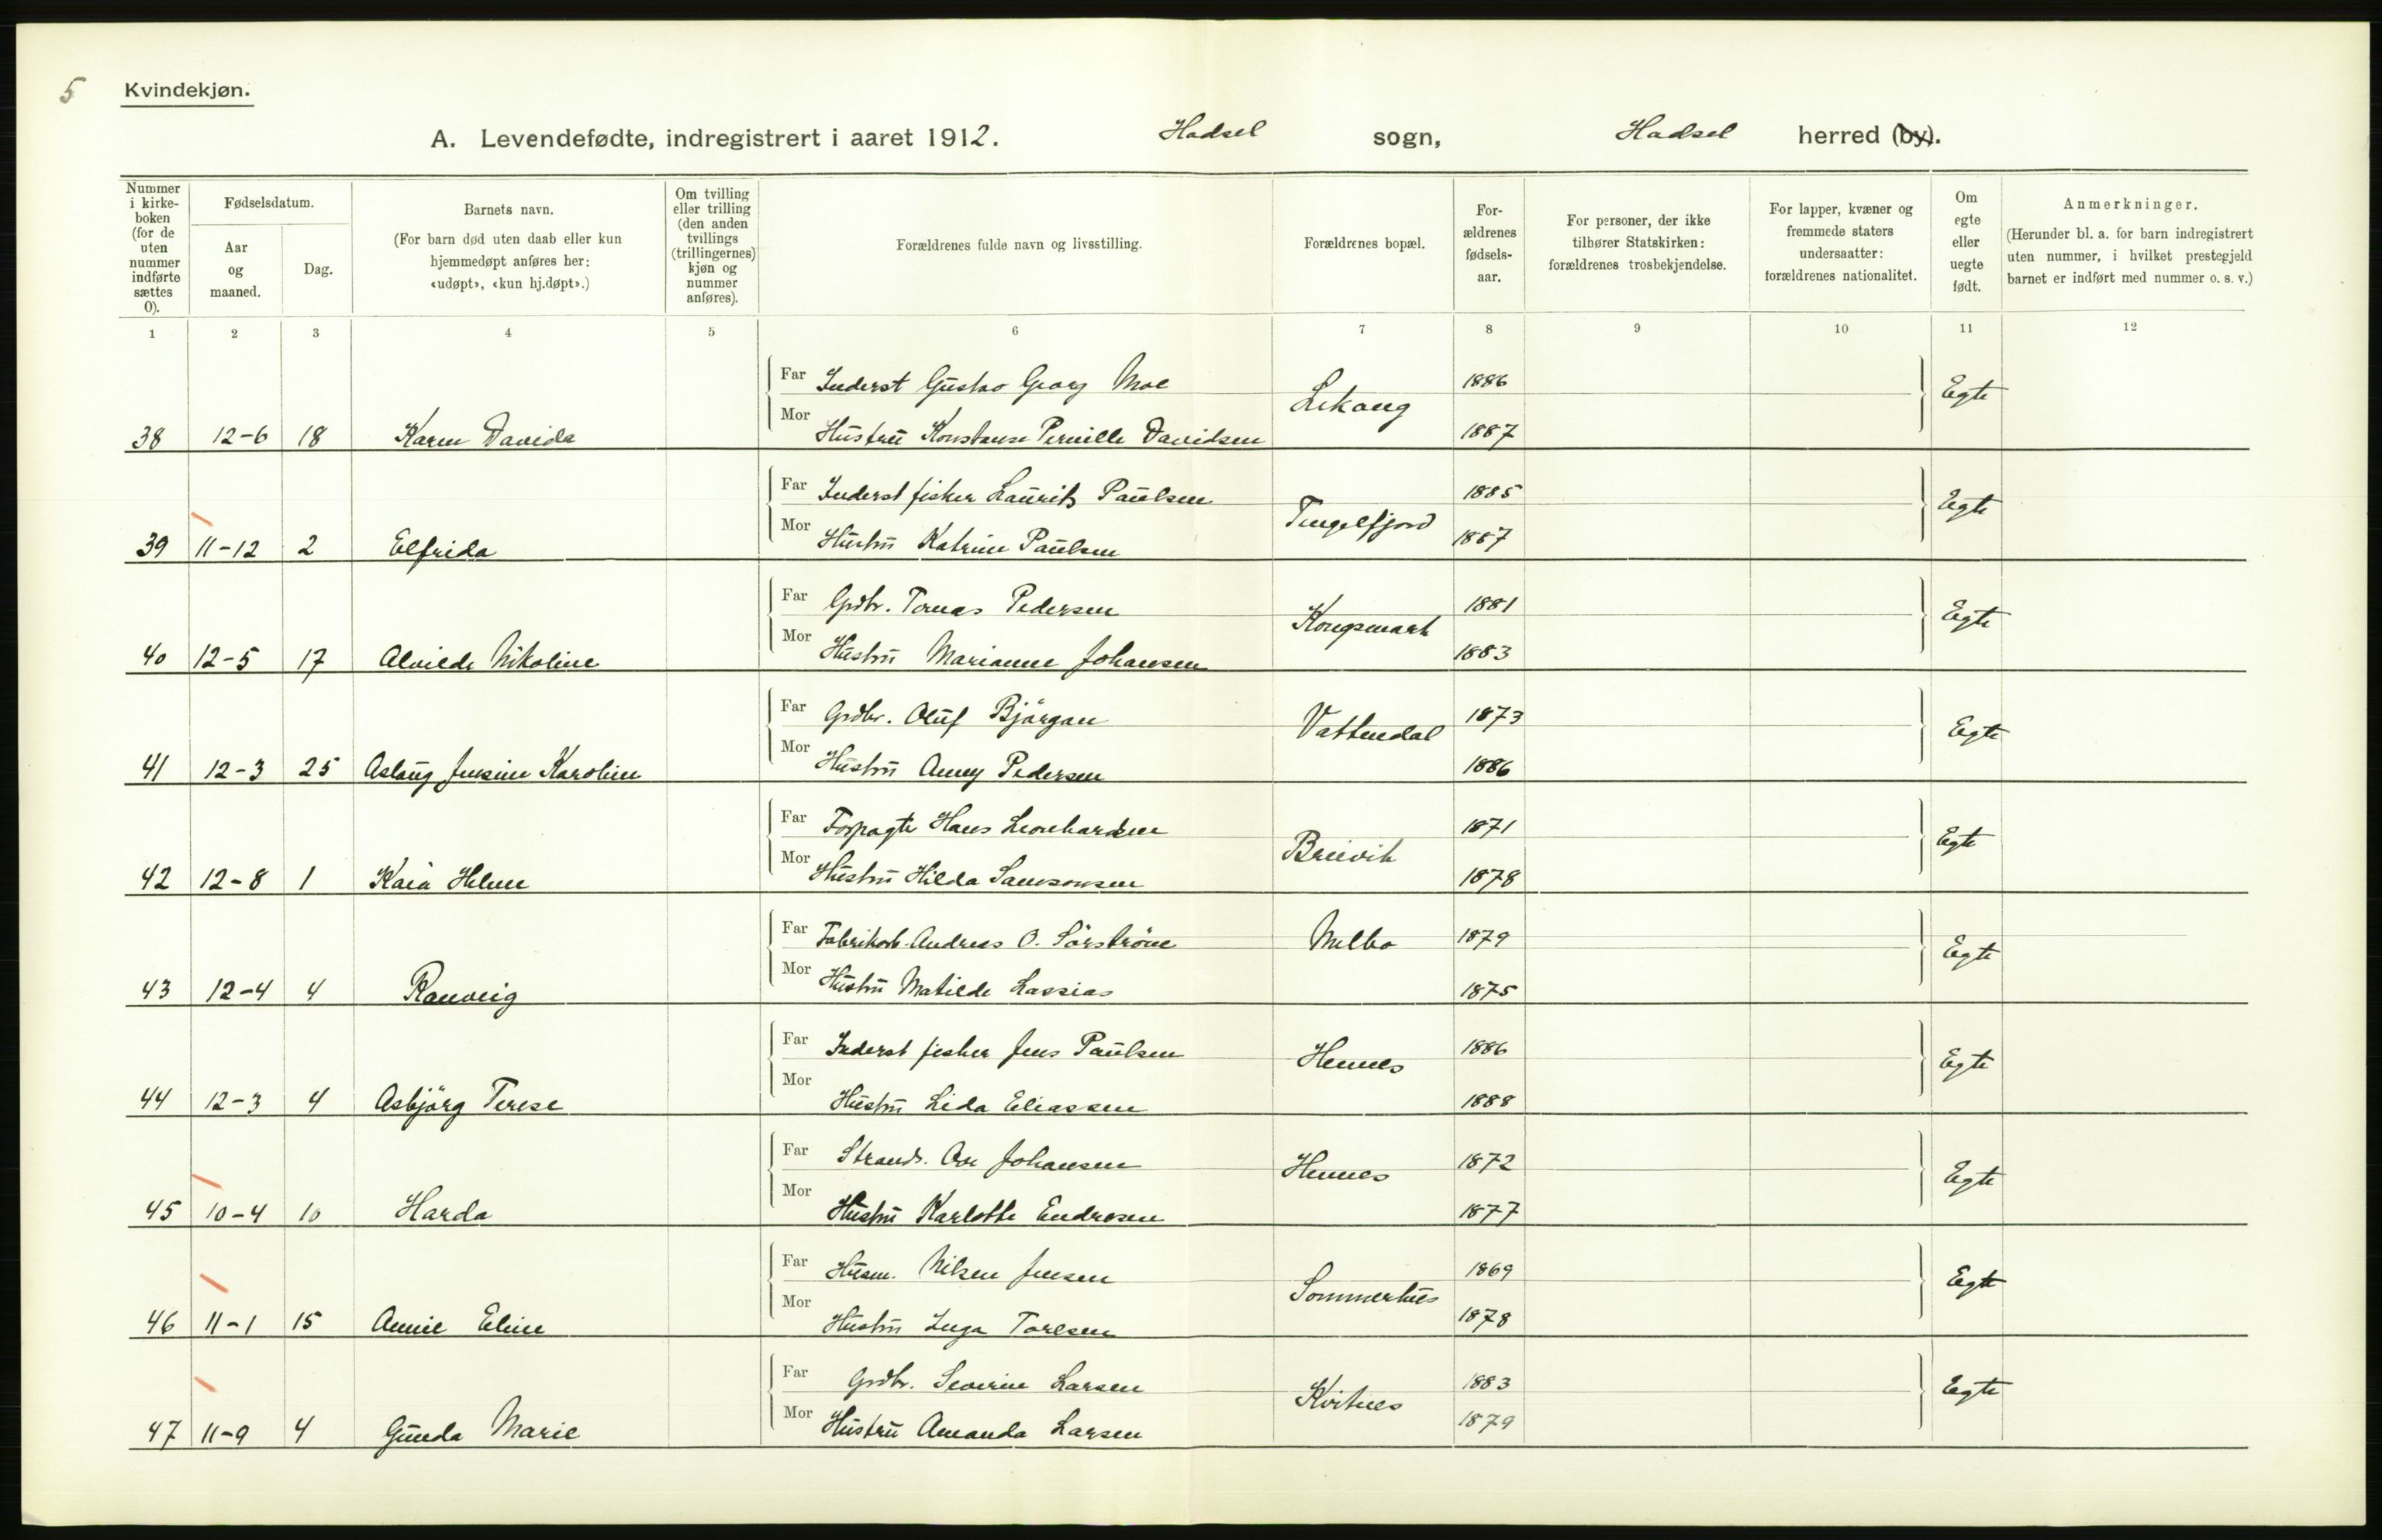 5
Kvindekjøn.
A. Levendefødte, indregistrert i aaret 1912. Hadsel sogn, Hadsel herred (by).
Nummer i kirkeboken (for de uten nummer indførte sættes 0).
Fødselsdatum.
Aar og maaned.
Dag.
Barnets navn.
(For barn død uten daab eller kun hjemmedøpt anføres her: «udøpt», «kun hj.døpt».)
Om tvilling eller trilling (den anden tvillings (trillingernes) kjøn og nummer anføres).
Forældrenes fulde navn og livsstilling.
Forældrenes bopæl.
Forældrenes fødselsaar.
For personer, der ikke tilhører Statskirken: forældrenes trosbekjendelse.
For lapper, kvæner og fremmede staters undersaatter: forældrenes nationalitet.
Om egte eller uegte født.
Anmerkninger.
(Herunder bl. a. for barn indregistrert uten nummer, i hvilket prestegjeld barnet er indført med nummer o. s. v.)
1 2 3 4 5 6 7 8 9 10 11 12
Far Inderst Gustav Georg Moe 1886
38 12-6 18 Karen Davida Mor Hustru Konstanse Pernille Davidsen Lekang 1887 Egte
Far Inderst fisker Laurits Paulsen 1885
39 11-12 2 Elfrida Mor Hustru Katrine Paulsen Tengelfjord 1887 Egte
Far Grdbr. Tomas Pedersen 1881
40 12-5 17 Alvilde Nikoline Mor Hustru Marianne Johansen Kongsmark 1883 Egte
Far Grdbr. Oluf Bjørgan 1873
41 12-3 25 Aslaug Jensine Karoline Mor Hustru Anny Pedersen Vattendal 1886 Egte
Far Forpagter Hans Leonhardsen 1871
42 12-8 1 Kaia Helene Mor Hustru Hilda Samsonsen Breivik 1878 Egte
Far Fabrikarb. Andreas O. Sørstrøm 1879
43 12-4 4 Ranveig Mor Hustru Matilde Lassias Melbo 1875 Egte
Far Inderst fisker Jens Paulsen 1886
44 12-3 4 Asbjørg Terese Mor Hustru Lida Eliassen Hennes 1888 Egte
Far Strands. Ove Johansen 1872
45 10-4 10 Harda Mor Hustru Karlotte Endresen Hennes 1877 Egte
Far Husm. Nilsen Jensen 1869
46 11-1 15 Annie Eline Mor Hustru Inga Torlsen Sommerhus 1878 Egte
Far Grdbr. Severin Larsen 1883
47 11-9 4 Gunda Marie Mor Hustru Amanda Larsen Kvitnes 1879 Egte